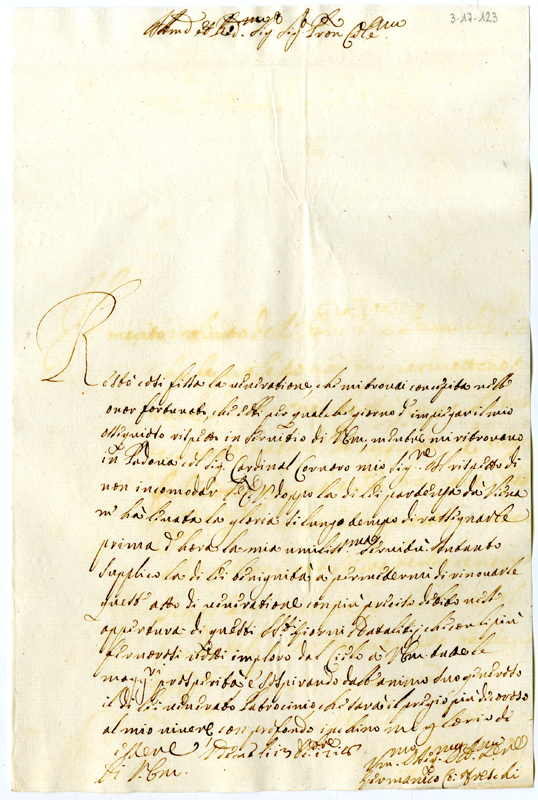 3-17-123
Restò così fissa la veneratione, che mi trovai concepita nell
onor fortunato, che ebbi per qualche giorno d'impiegar il mio
ossequioso rispetto in servitio di V Em, mentre mi ritrovavo
in Padova col Sig. Cardinal Cornaro mio Sig.re Il rispetto di
non incomodar doppo la di lei partenza da Viena
m'ha levata la gloria sì lungo tempo di rassignarle
prima d'hora la mia umiliss.ma servitù. Intanto
supplico la di lei benignità à permettermi di rinovarle
quest' atto di veneratione con più preciso debito nell'
appertura di questi Ss.ti Giorni Natalitij, che con li più
fervorosi voti imploro dal cielo à V Em. tutte le
maggiori prosperità e sospirando dall'animo suo generoso
il di lei venerato Patrocinio, che sarà il pregio più decoroso
al mio vivere con profondo inchino me glorio di
essere
Di V Em.
Germanico